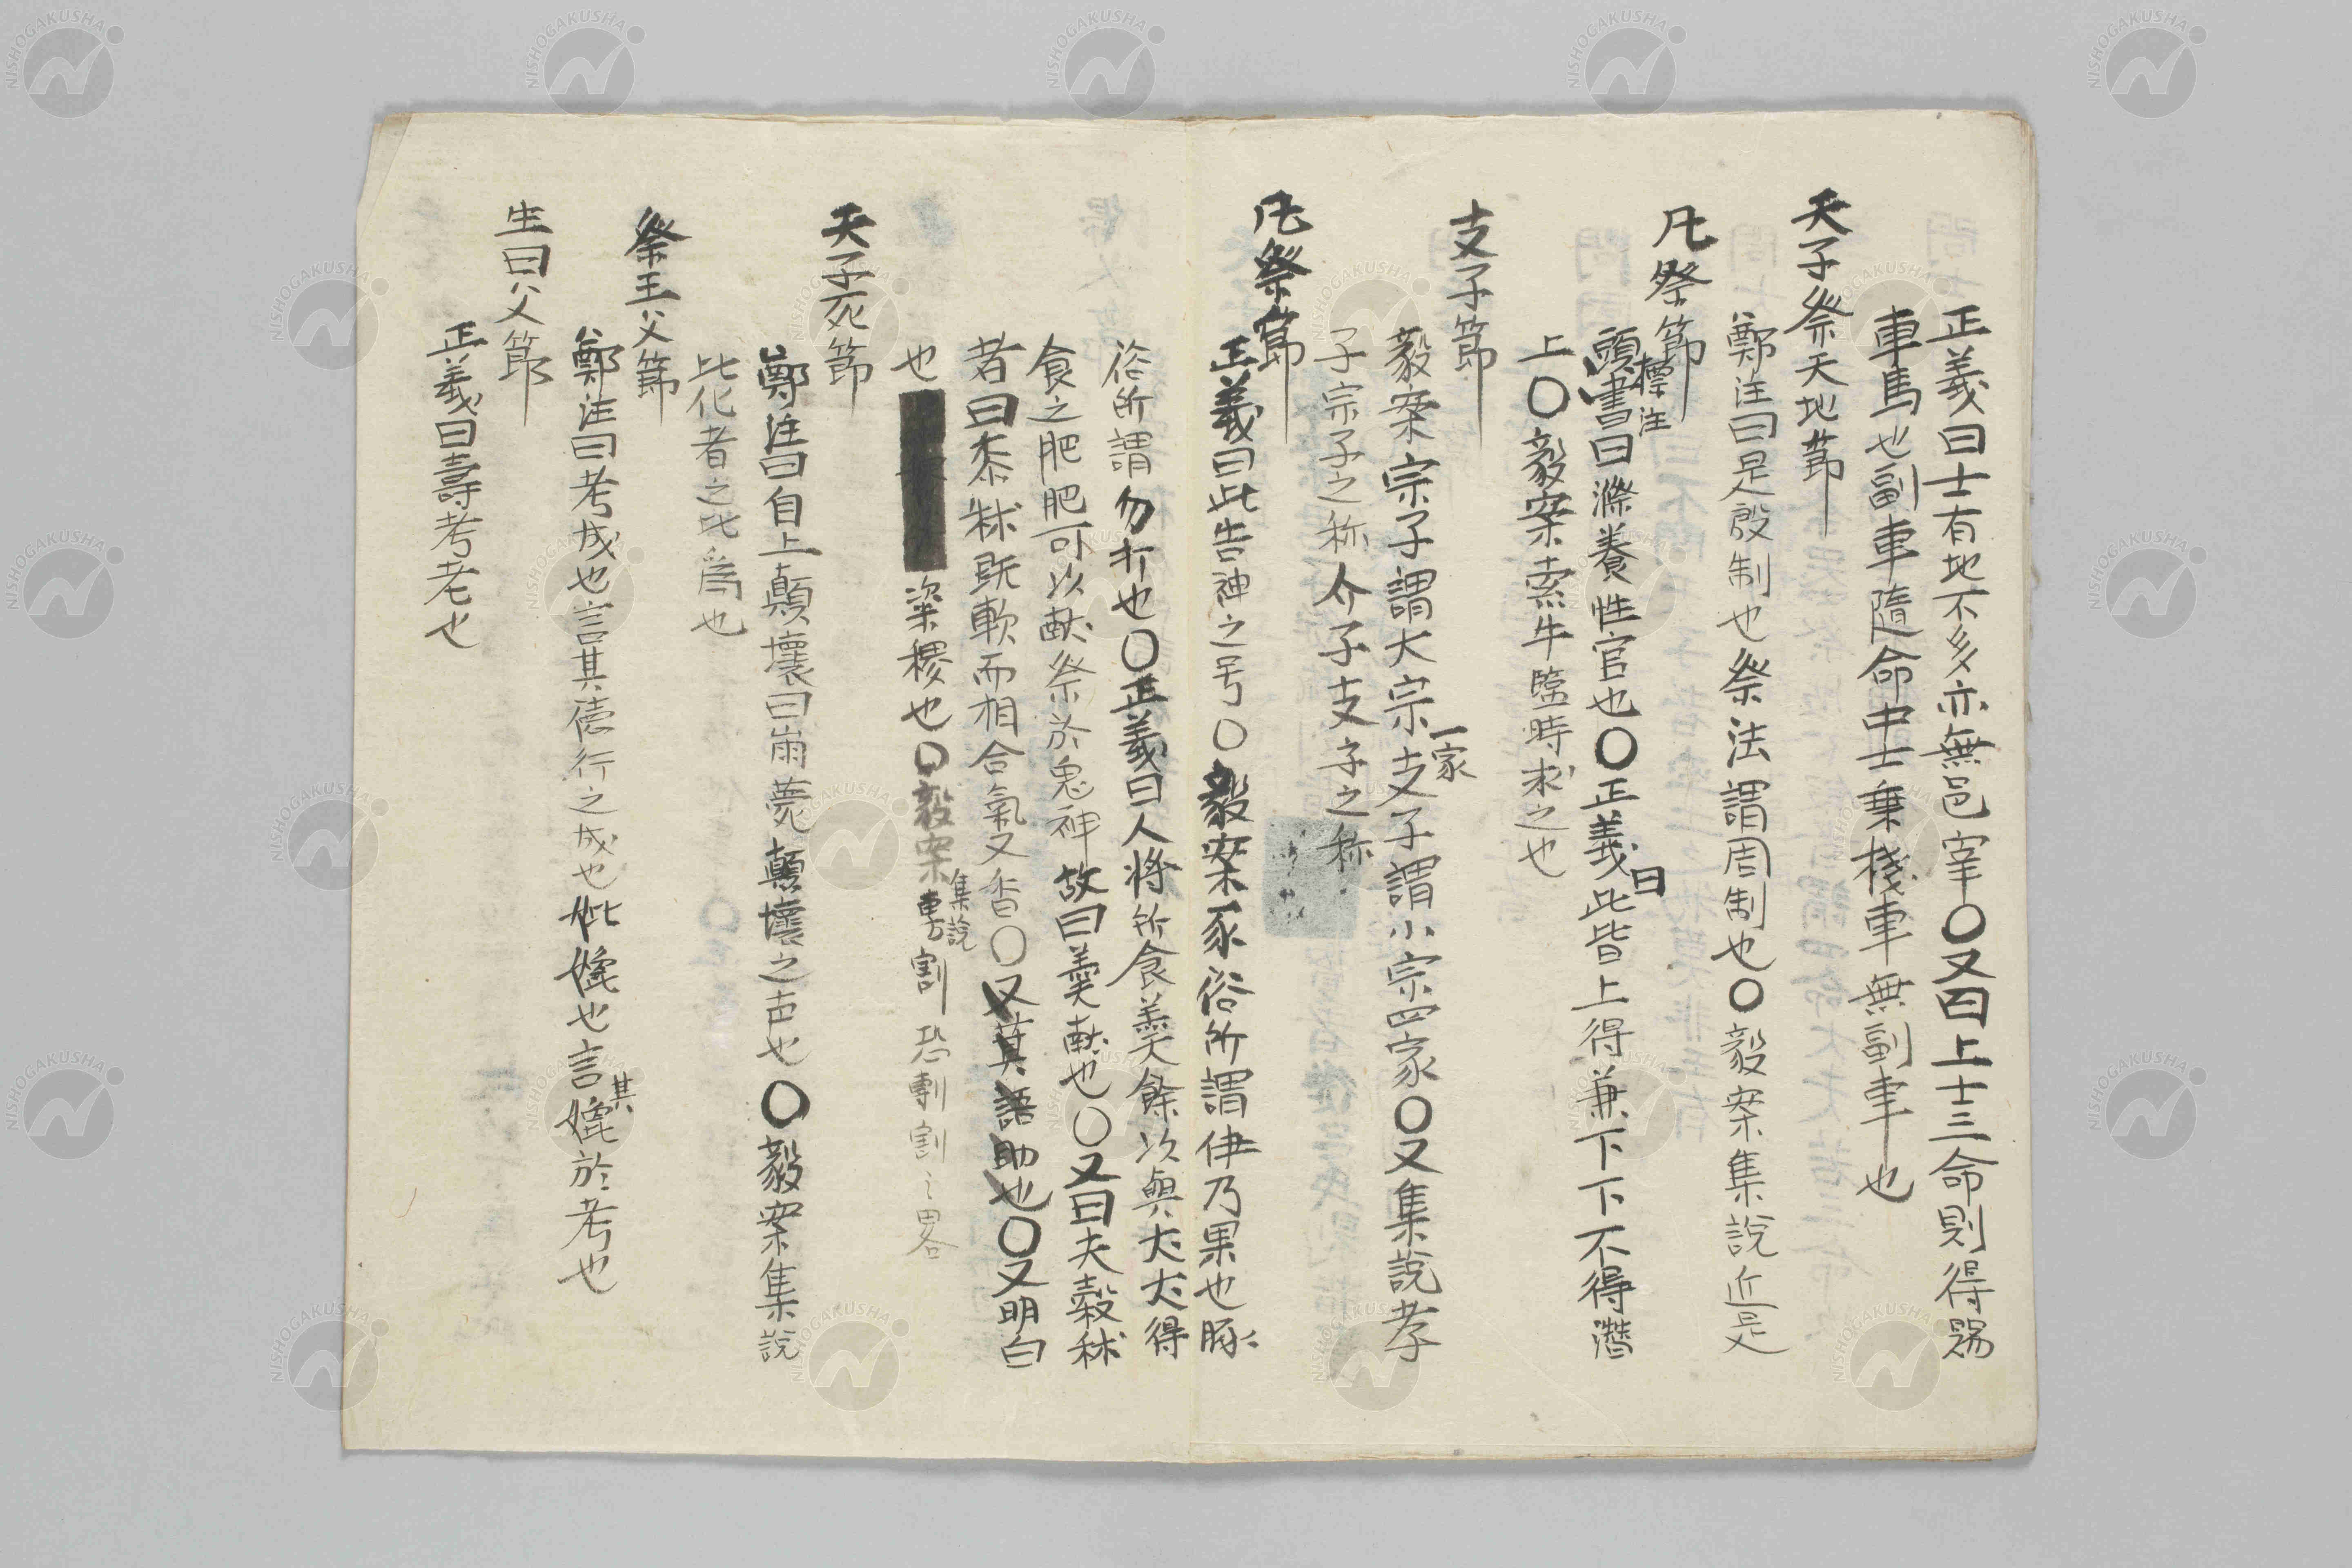 正義曰士有地不多亦無邑宰〇又曰上士三命則得賜
車馬也副車隨命中士乗棧車無副車也
天子祭天地節
鄭注曰是殷制也祭法謂周制也〇毅案集説近是
凡祭節
頭書標注曰滌養牲官也〇正義曰此皆上得兼下下不得僭
上〇毅案索牛臨時求之也
支子節
毅案宗子謂大宗一家支子謂小宗四家〇又集説孝
子宗子之称介子支子之称
凡祭節
正義曰此告神之号〇毅案豕俗所謂伊乃果也豚
俗所謂勿打也〇正義曰人将所食羹餘以與犬犬得
食之肥肥可以献祭於鬼神故曰羹献也〇又曰夫穀秫
者曰黍秫既軟而相合氣又香〇又萁語助也〇又明白
也粢稷也〇毅案集説割恐剸割之畧
天子死節
鄭注曰自上顛壞曰崩薨顛壞之声也〇毅案集説
比化者之比為也
祭王父節
鄭注曰考成也言其徳行之成也妣媲也言其媲於考也
生曰父節
正義曰壽考考老也
NISHOGAKUSHA